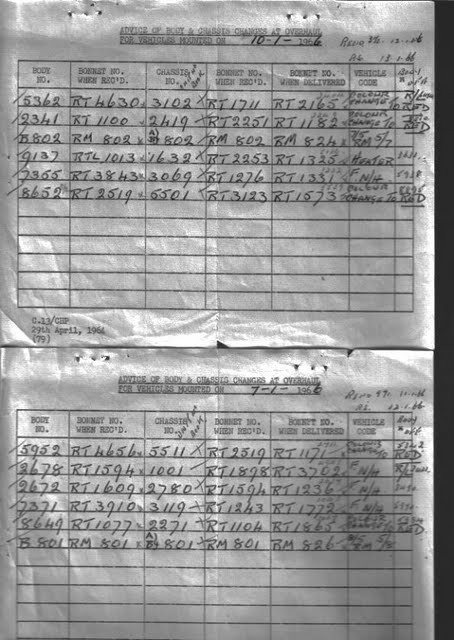 ADVICE OF BODY & CHASSIS CHANGES AT OVERHAUL
FOR VEHICLES MOUNTED ON 10-1-1966
BODY NO. BONNET NO. WHEN REC'D. CHASSIS NO. BONNET NO. WHEN REC'D. BONNET NO. WHEN DELIVERED VEHICLE CODE
5362 RT 4630 3102 RT 1711 RT 2165 COLOUR CHANGE TO RED
2341 RT 1100 2419 RT 2251 RT 1182 COLOUR CHANGE TO RED
B802 RM 802 802 RM 802 RM 824
9137 RTL 1013 1632 RT 2253 RT 1325 HEATER
7355 RT 3843 3069 RT 1276 F N/H
8652 RT 2519 5501 RT 3123 RT 1573 COLOUR CHANGE TO RED
C.13/CHP
29th April, 1964
(79)
ADVICE OF BODY & CHASSIS CHANGES AT OVERHAUL
FOR VEHICLES MOUNTED ON 7-1-1966
BODY NO. BONNET NO. WHEN REC'D. CHASSIS NO. BONNET NO. WHEN REC'D. BONNET NO. WHEN DELIVERED VEHICLE CODE
5952 RT 4656 5511 RT 2519 COLOUR CHANGE TO RED
2678 RT 1594 1001 RT 1898 RT 3702 F N/H
2672 RT 1609 2780 RT 1594 RT 1236 F N/H
7371 RT 3910 3119 RT 1243 RT 1772 F N/H
8649 RT 1077 2271 RT 1104 RT 1863 COLOUR CHANGE TO RED
B 801 RM 801 801 RM 801 RM 826